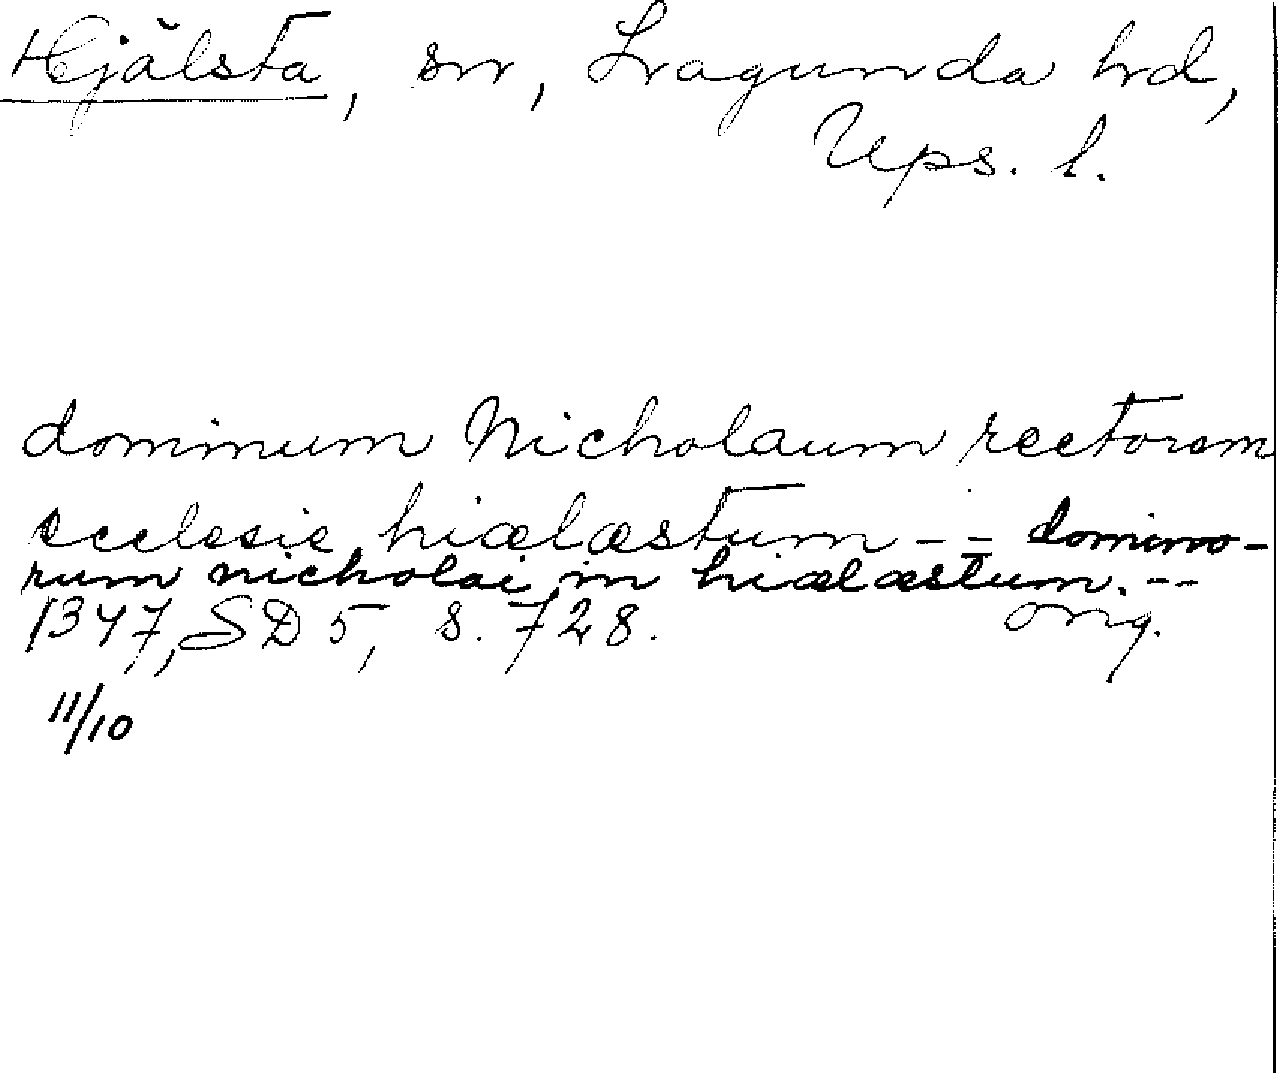 Hjälsta, sn, Lagunda hd,
Ups. l.
dominum Nicholaum rectorem
ecclesie hiælæstum -- domino-
rum nicholai in hiælæstum. --
1347, SD 5, s. 728. orig.
11/10